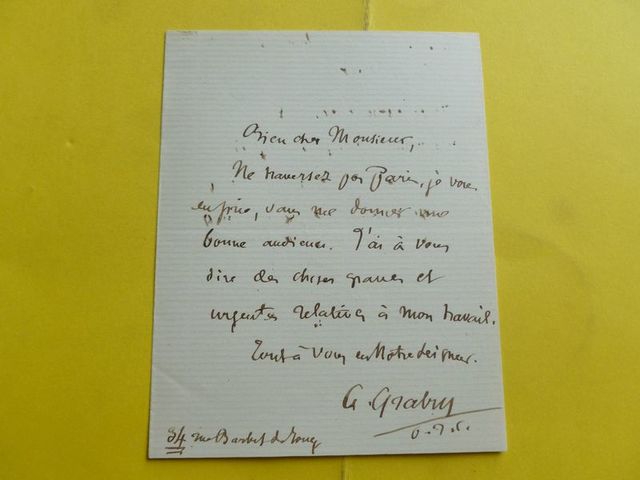 Bien cher Monsieur,
Ne traversez pas Paris, je vous
en prie, sans me donner une
bonne audience. J'ai à vous
dire des choses graves et
urgentes relatives à mon travail.
Tout à vous en Notre Seigneur.
G.
34 rue Barbet de Jouy